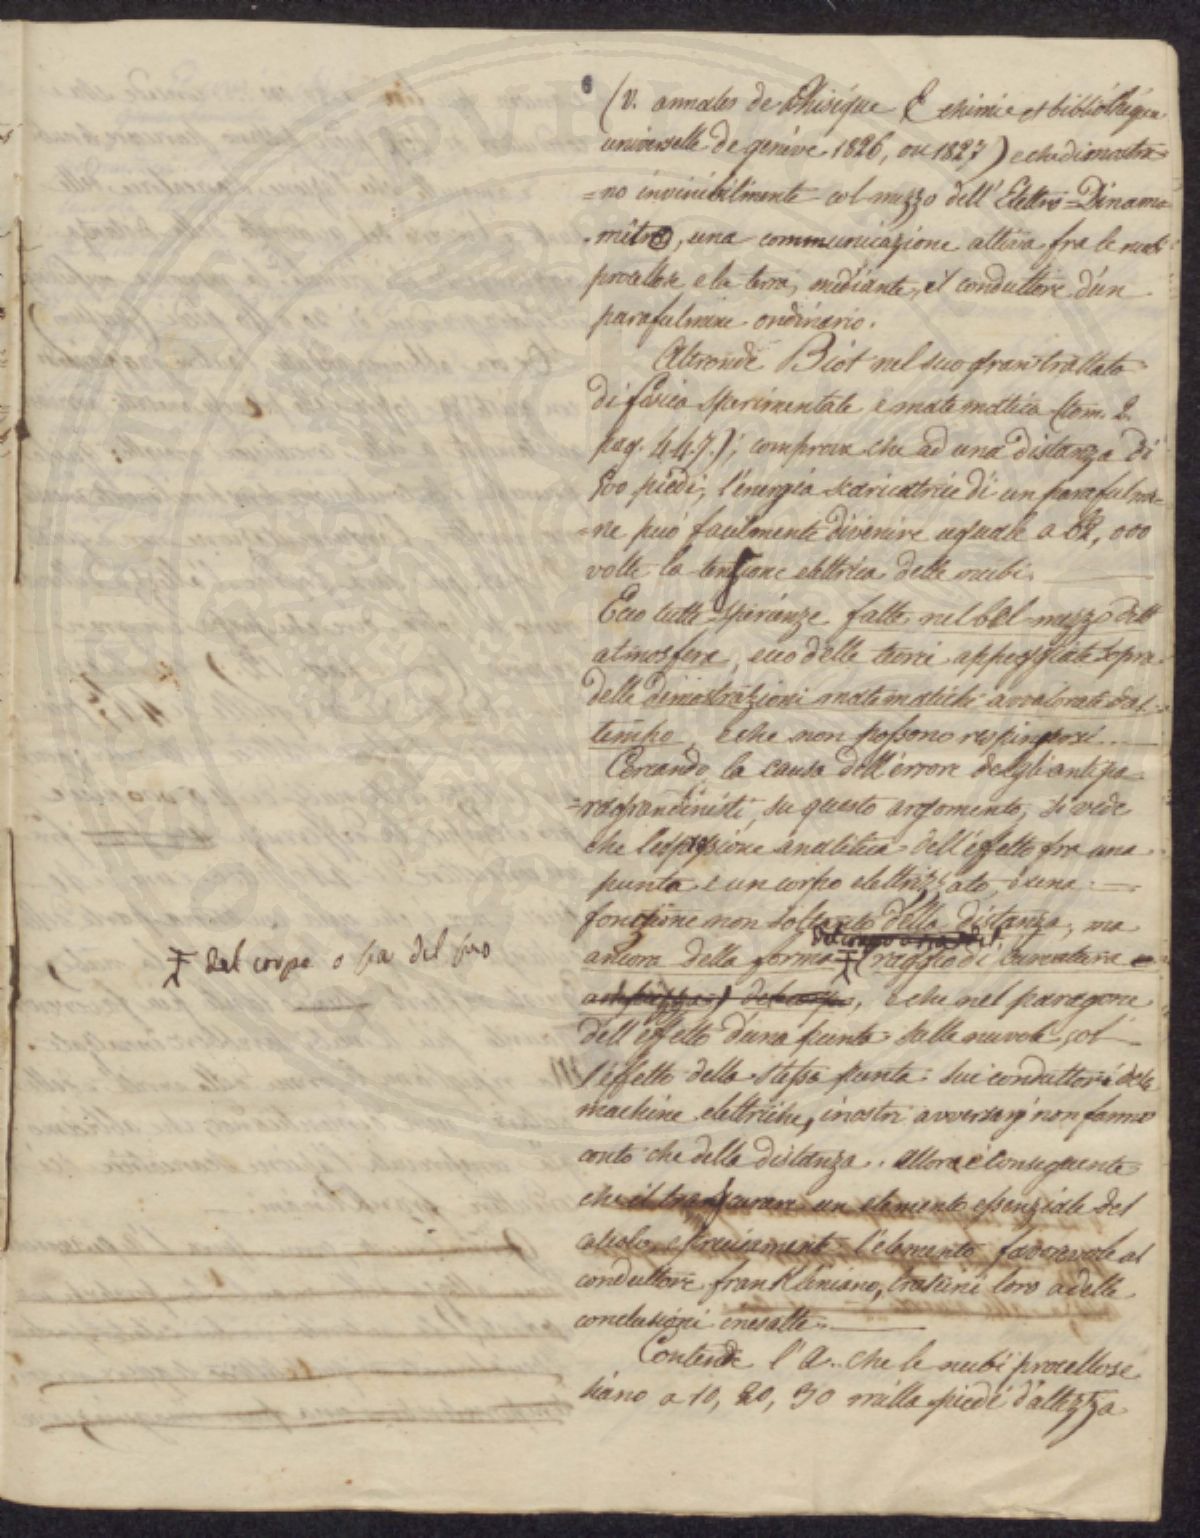 (v. annales de Phisique & chimie et bibliothéque
universelle de genéve 1826, ou 1827) e che dimostra=
=no invincibilmente col mezzo dell'Elettro=Dinamo
=métro, una communicazione attiva fra le nubi
procellose e la terra, mediante, il conduttore d'un
parafulmine ordinario.
Altronde Biot nel suo gran trattato
di fisica sperimentale e matemattica (tom. 2.
pag. 447.); comprova che ad una distanza di
piedi, l'energia scaricatrice di un parafulmi=
=ne può facilmente divenire uguale a 82,000
volte la tensione elettrica delle nubi.
Ecco tutte sperienze fatte nel bel mezzo dell'
atmosfera, ecco delle teorie appoggiate sopra
delle dimostrazioni matematiche avvalorate dal
tempo, e che non possono respingersi.
Cercando la causa dell'errore degli antipa=
=ragrandinisti, su questo argomento, si vede
che l'espressione analitica dell'effetto fra una
punta e un corpo elettrizzato, è una
fonzione non soltanto della distanza, ma
ancora della forma (raggio di curvatura
dal corpo o sia del suo
, e che nel paragone
dell'effetto d'una punta sulla nuvola, col
l'effetto della stessa punta sui conduttori delle
machine elettriche, i nostri avversarj non fanno
conto che della distanza. allora è conseguente
che il trascurare un elemento essenziale del
calcolo, e precisamente l'elemento favorevole al
conduttore frankliniano, trascini loro a delle
conclusioni inesatte.
Contende l'A. che le nubi procellose
siano a 10, 20, 30 milla piedi d'altezza